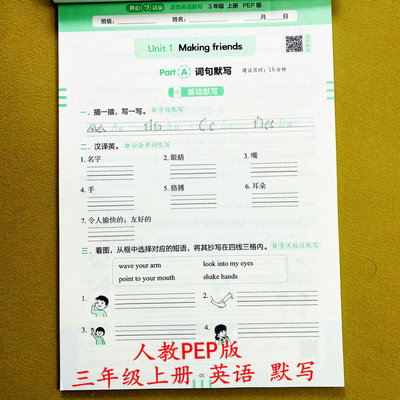 开心 活页 活页英语默写 3年级 上册 PEP版
班级： 姓名： 月 日
Unit 1 Making friends
Part A 词句默写 建议用时：15分钟
基础默写
一、描一描，写一写。 字母默写
Aa Bb Cc Dd
二、汉译英。 必会单词默写
1. 名字 2. 眼睛 3. 嘴
4. 手 5. 胳膊 6. 耳朵
7. 令人愉快的；友好的
三、看图，从框中选择对应的短语，将其抄写在四线三格内。 重点短语默写
wave your arm look into my eyes
point to your mouth shake hands
1. 2.
3. 4.
人教PEP版
三年级上册 英语 默写
01